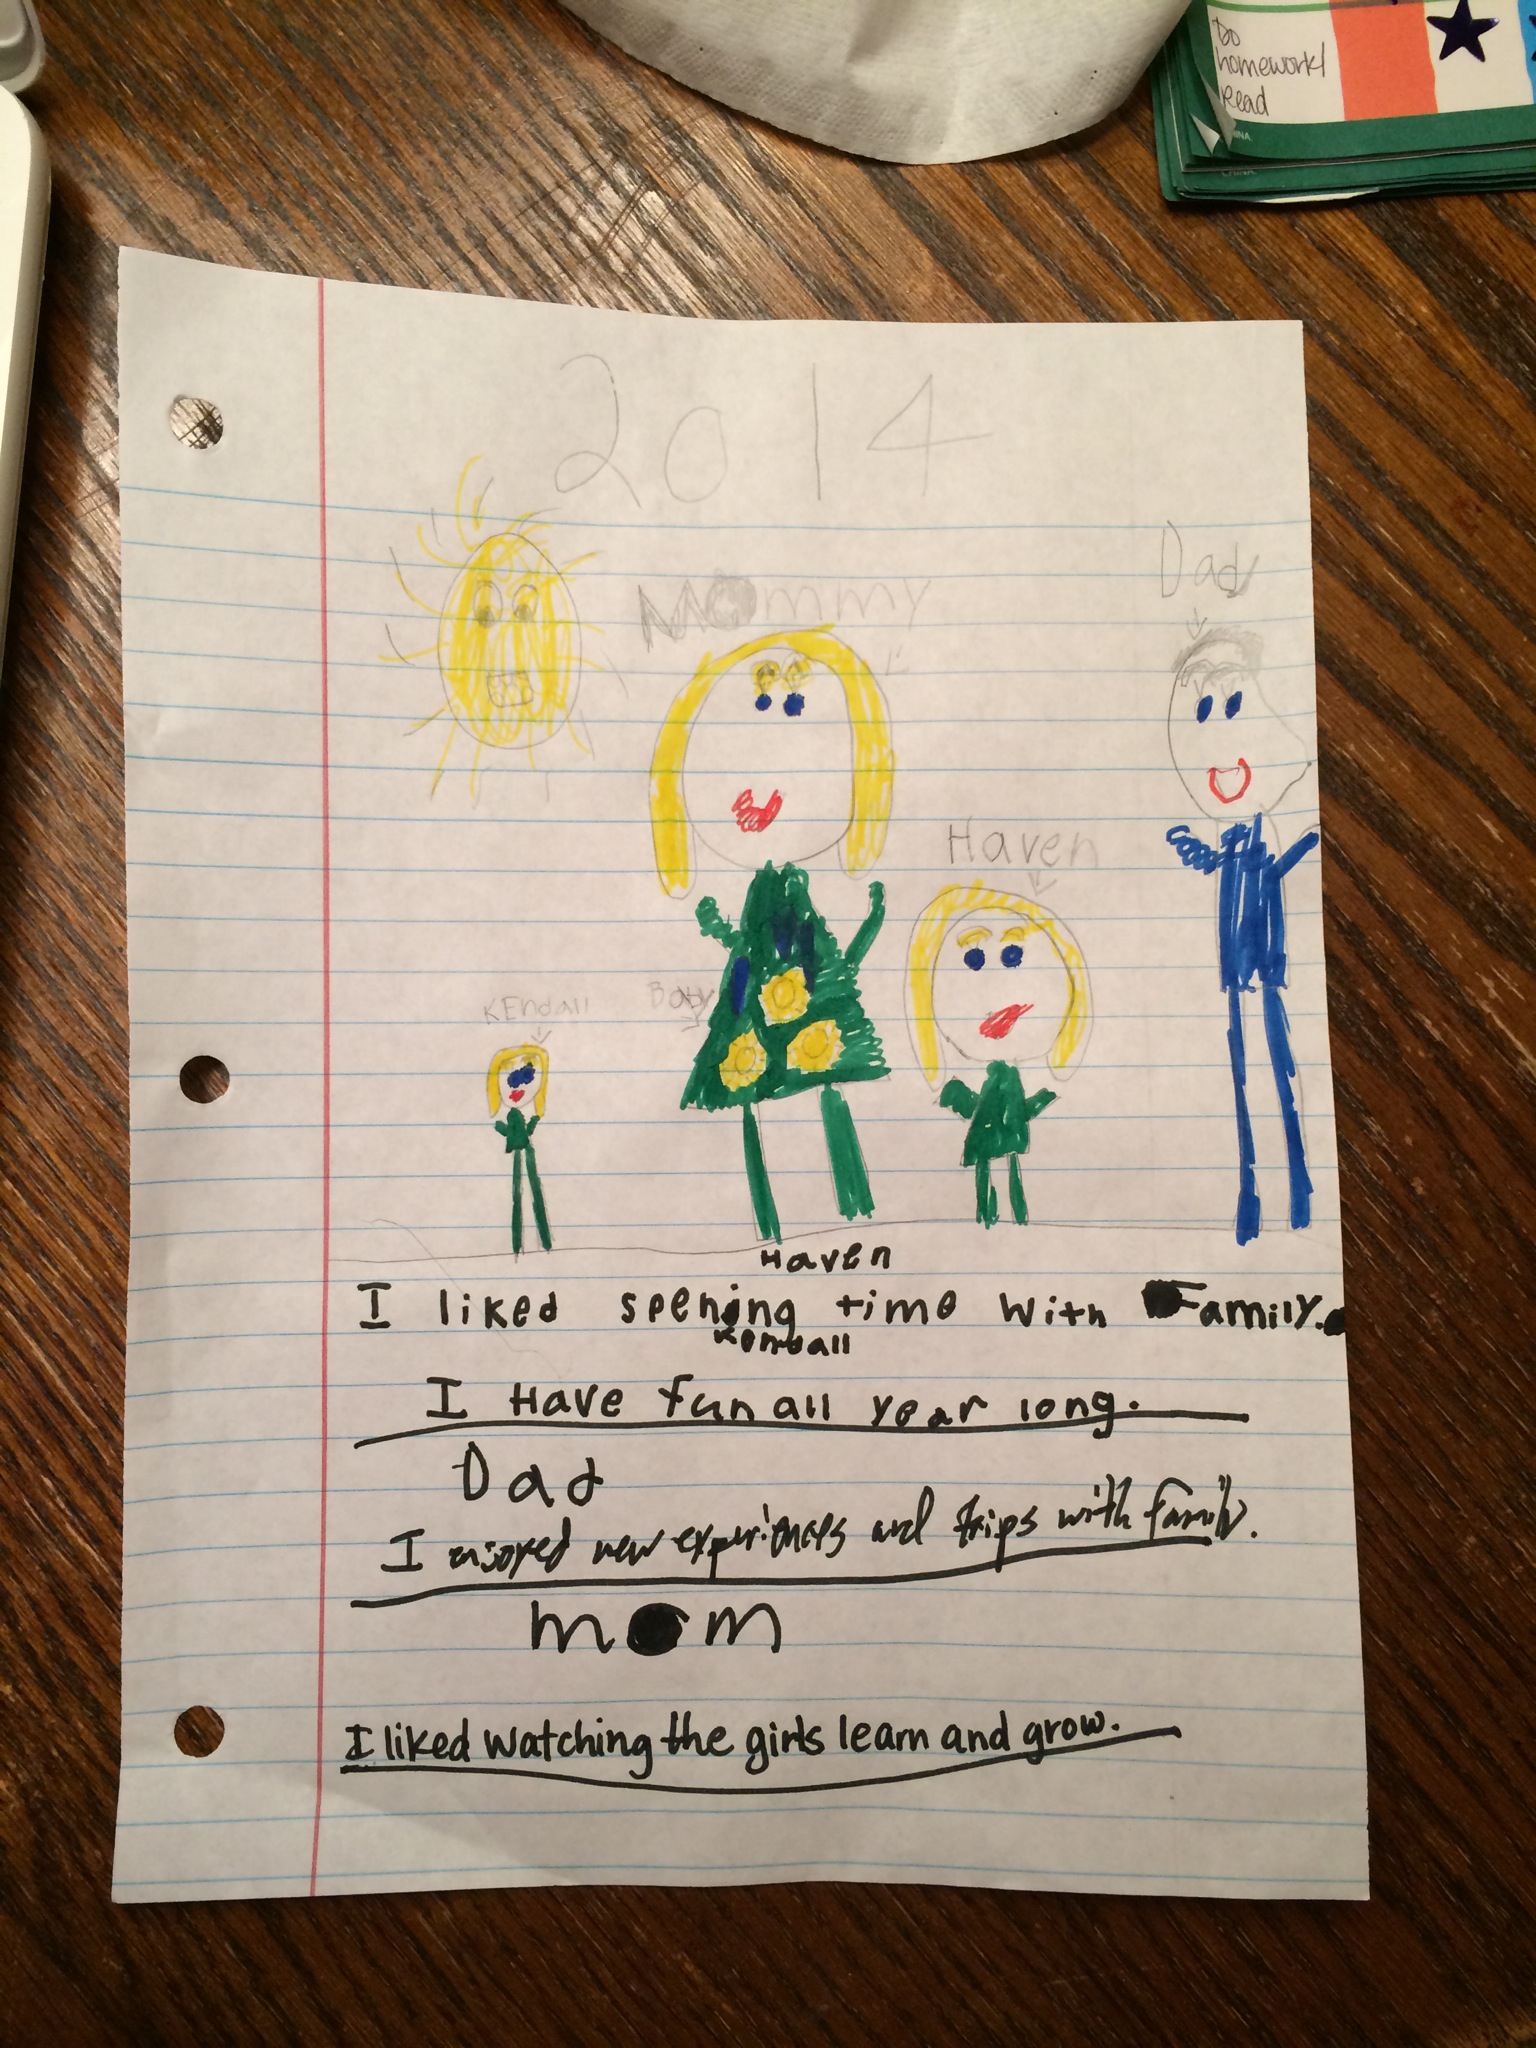 Do
homework/
Read
CHINA.
2014
Dad
Mommy
Haven
Kendall
Baby
Haven
I liked spening time with Family.
Kendall
I Have fun all year long.
Dad
I enjoyed new experiences and trips with family.
mom
I liked watching the girls learn and grow.